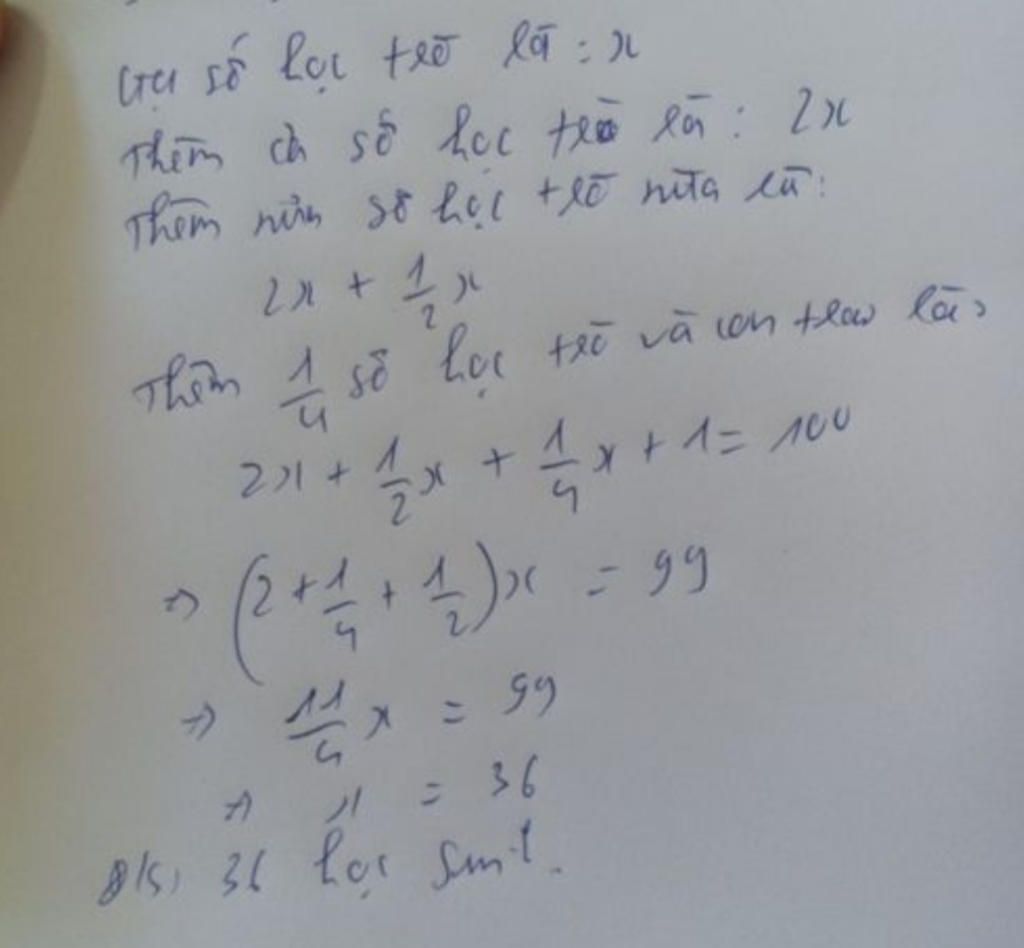 Gọi số học trò là : x
Thêm cả số học trò là : 2x
Thêm nửa số học trò nữa là :
2x + 1/2 x
Thêm 1/4 số học trò và con thầy là :
2x + 1/2 x + 1/4 x + 1 = 100
=> (2 + 1/4 + 1/2) x = 99
=> 11/4 x = 99
=> x = 36
Đ/S : 36 học sinh.